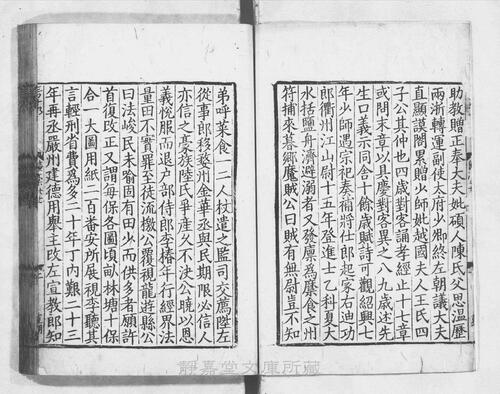 助教贈正奉大夫妣碩人陳氏父恩溫歷
兩浙轉運副使太府少卿終左朝議大夫
直顯謨閣累贈少師妣越國夫人王氏四
子公其仲也四歲對客誦孝經止十七章
或問末章以具慶對客異之八九歲述先
生口義示同舍十餘歲賦詩可觀紹興七
年少師遇宗祀奏補將仕郎起家右迪功
郎衢州江山尉十五年登進士乙科夏大
水括鹽舟濟溺者又發廪爲糜食之州
符捕來暮鄉魔賊公曰賊有無尉豈不知
弟呼菜食一二人杖遣之監司交薦陞左
從事郎移婺州金華丞與民期限必信人
亦信之豪族陸氏爭產久不決公曉以恩
義悅服而退户部侍郎李椿年行經界法
量田不實罪至徒流檄公覆視龍游縣公
曰法峻民未喻固有田少而供多者願許
首復改正又謂每保各圖頃畝林塘十保
合一大圖用紙二百番安所展視李聽其
言輕刑省費爲多二十年丁內艱二十三
年再丞嚴州建德用舉主改左宣教郎知
靜嘉堂文庫所藏